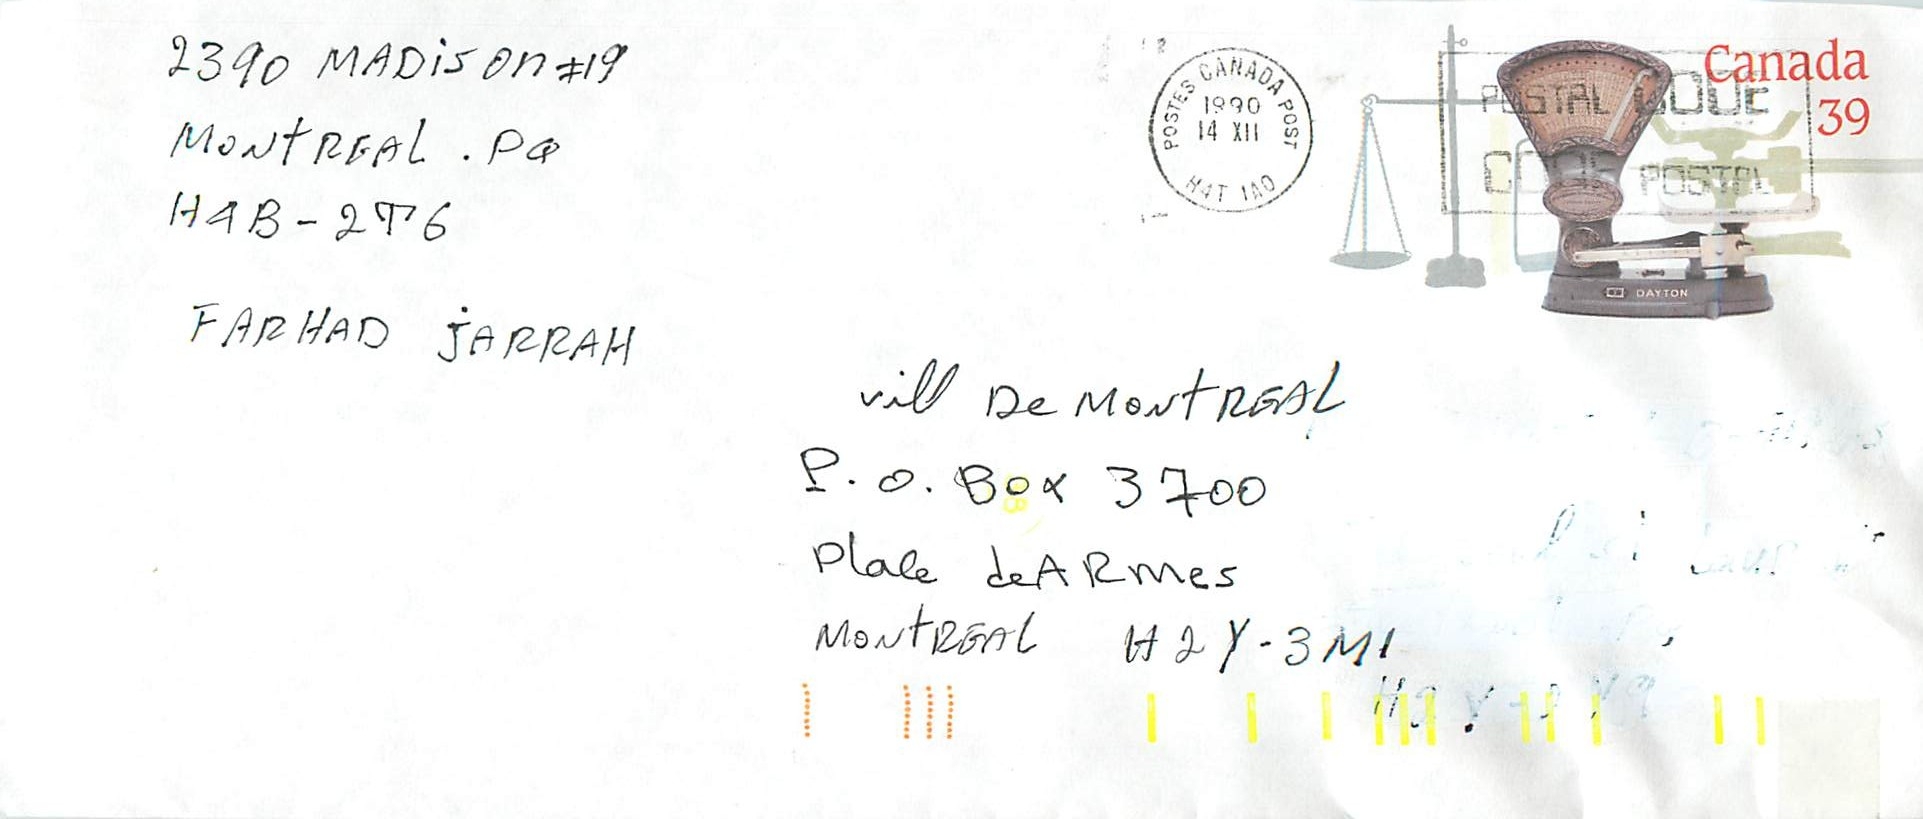 2390 MADiSON #19
MONTREAL . PQ
H4B - 2T6
FARHAD JARRAH
POSTES CANADA POST
1990
14 XII
H4T 1A0
Canada
39
POSTAL CODE
CODE POSTAL
DAYTON
vill De MONTREAL
P. O. Box 3700
Place deARmes
MONTREAL H2Y-3M1